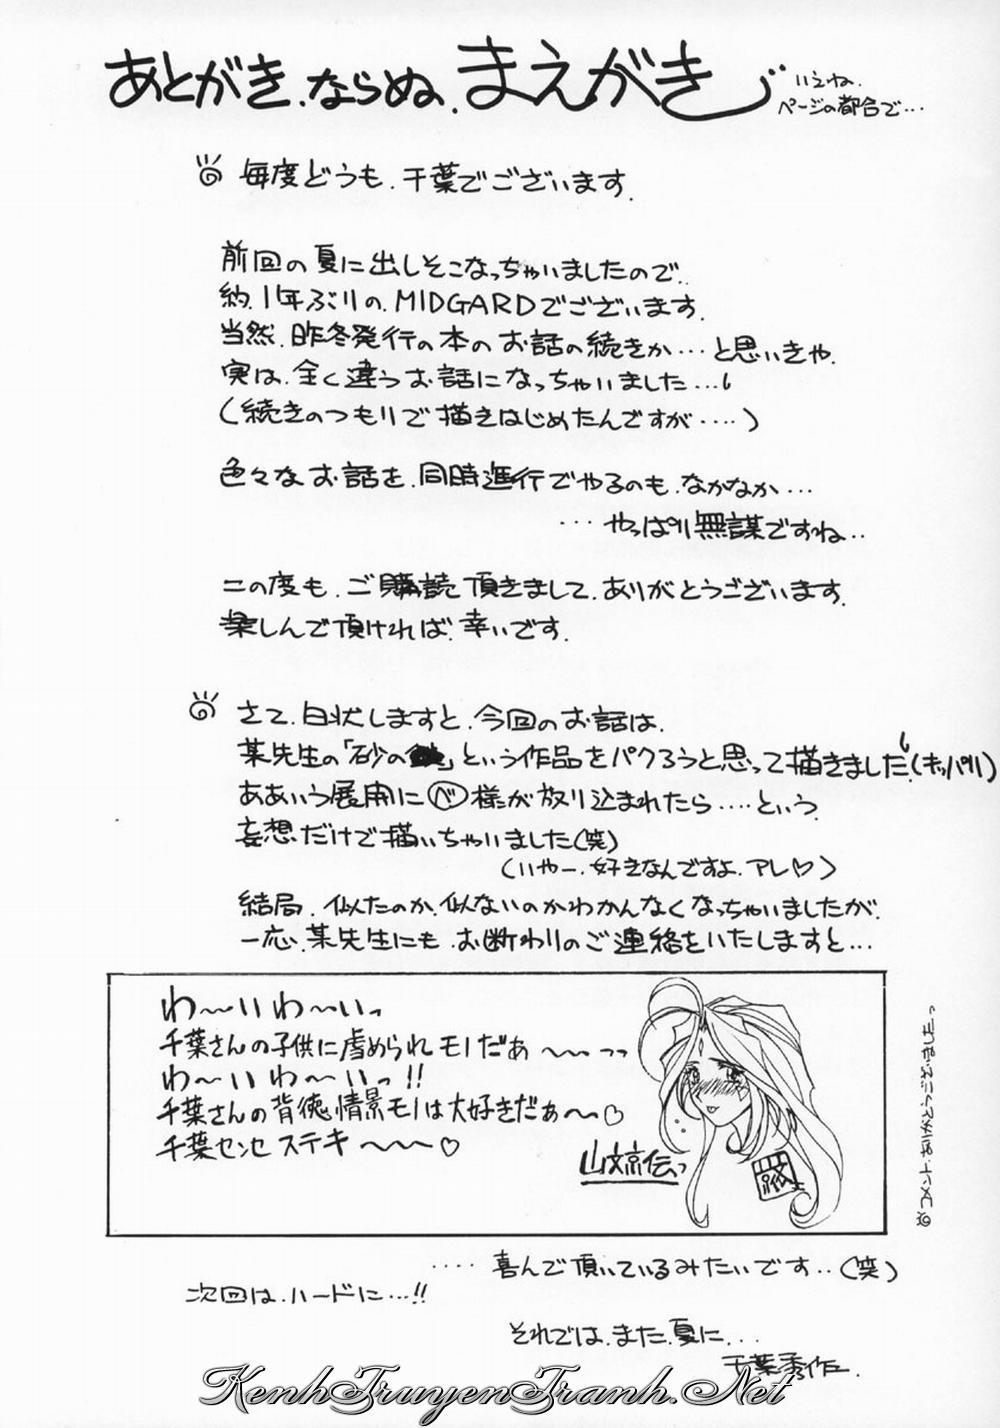 あとがき、ならぬ、まえがき
いえね、
ページの都合で…
毎度どうも、千葉でございます。
前回の夏に出しそこなっちゃいましたので、
約、1年ぶりの、MIDGARDでございます。
当然、昨冬発行の本のお話の続きか…と思いきや、
実は、全く違うお話になっちゃいました…
(続きのつもりで描きはじめたんですが‥‥)
色々なお話を、同時進行でやるのも、なかなか…
…やっぱり無謀ですね‥
この度も、ご購読頂きまして、ありがとうございます。
楽しんで頂ければ、幸いです。
さて、白状しますと、今回のお話は、
某先生の「砂の」という作品をパクろうと思って描きました。(キッパリ)
ああいう展開に㋬様が放り込まれたら‥‥という、
妄想だけで描いちゃいました(笑)
(いやー、好きなんですよ、アレ♡)
結局、似たのか、似ないのかわかんなくなっちゃいましたが、
一応、某先生にも、お断わりのご連絡をいたしますと…
わ〜いわ〜いっ
千葉さんの子供に虐められモノだぁ〜〜っっ
わ〜いわ〜いっ!!
千葉さんの背徳、情景モノは大好きだぁ〜♡
千葉センセ ステキ〜〜〜♡
山文京伝っ
◎コメント、ありがとうございましたっ
‥‥喜んで頂いているみたいです‥(笑)
次回は、ハードに…!!
それでは、また、夏に…
千葉秀作
KenhTruyenTranh.Net